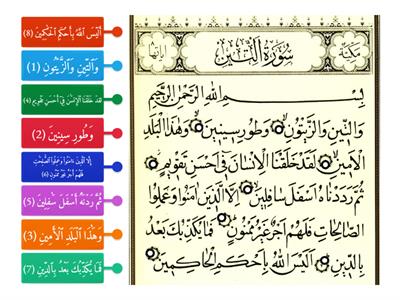 أَلَيْسَ ٱللَّهُ بِأَحْكَمِ ٱلْحَٰكِمِينَ (8)
وَٱلتِّينِ وَٱلزَّيْتُونِ (1)
لَقَدْ خَلَقْنَا ٱلْإِنسَٰنَ فِىٓ أَحْسَنِ تَقْوِيمٍ (4)
وَطُورِ سِينِينَ (2)
إِلَّا ٱلَّذِينَ ءَامَنُوا۟ وَعَمِلُوا۟ ٱلصَّٰلِحَٰتِ
فَلَهُمْ أَجْرٌ غَيْرُ مَمْنُونٍ (6)
ثُمَّ رَدَدْنَٰهُ أَسْفَلَ سَٰفِلِينَ (5)
وَهَٰذَا ٱلْبَلَدِ ٱلْأَمِينِ (3)
فَمَا يُكَذِّبُكَ بَعْدُ بِٱلدِّينِ (7)
مكية
سُورَةُ التِّينِ
بِسْمِ اللهِ الرَّحْمٰنِ الرَّحِيمِ
وَالتِّينِ وَالزَّيْتُونِ وَطُورِ سِينِينَ وَهٰذَا الْبَلَدِ
الْأَمِينِ لَقَدْ خَلَقْنَا الْإِنْسَانَ فِي أَحْسَنِ تَقْوِيمٍ
ثُمَّ رَدَدْنَاهُ أَسْفَلَ سَافِلِينَ إِلَّا الَّذِينَ آمَنُوا وَعَمِلُوا
الصَّالِحَاتِ فَلَهُمْ أَجْرٌ غَيْرُ مَمْنُونٍ فَمَا يُكَذِّبُكَ بَعْدُ
بِالدِّينِ أَلَيْسَ اللهُ بِأَحْكَمِ الْحَاكِمِينَ